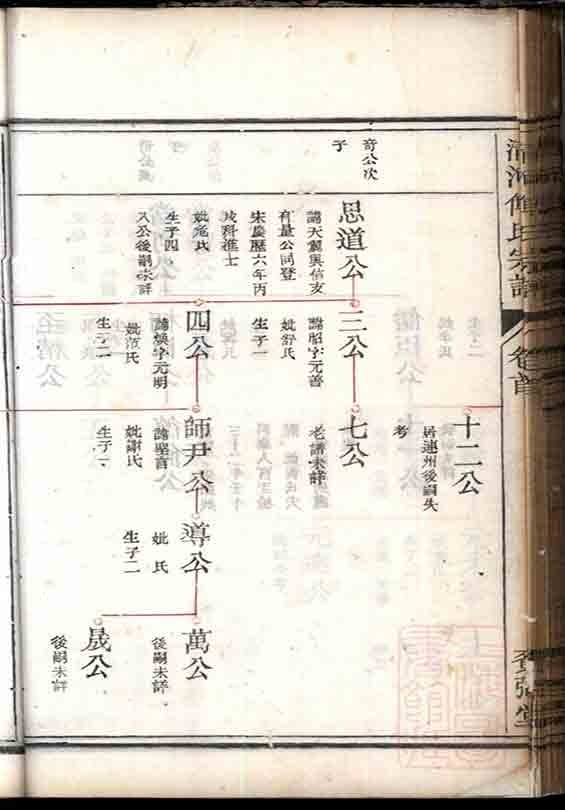 清江傅氏宗譜
卷首
奇公次
子
十二公
居連州後嗣失
考
思道公
諱天翼與信支
有量公同登
宋慶歷六年丙
戌科進士
妣范氏
生子四
入公後嗣未詳
三公
諱昭字元善
妣舒氏
生子一
七公
老譜未詳
四公
諱燠字元明
妣范氏
生子二
師尹公
諱聖言
妣謝氏
生子一
導公
妣 氏
生子二
萬公
後嗣未詳
晟公
後嗣未詳